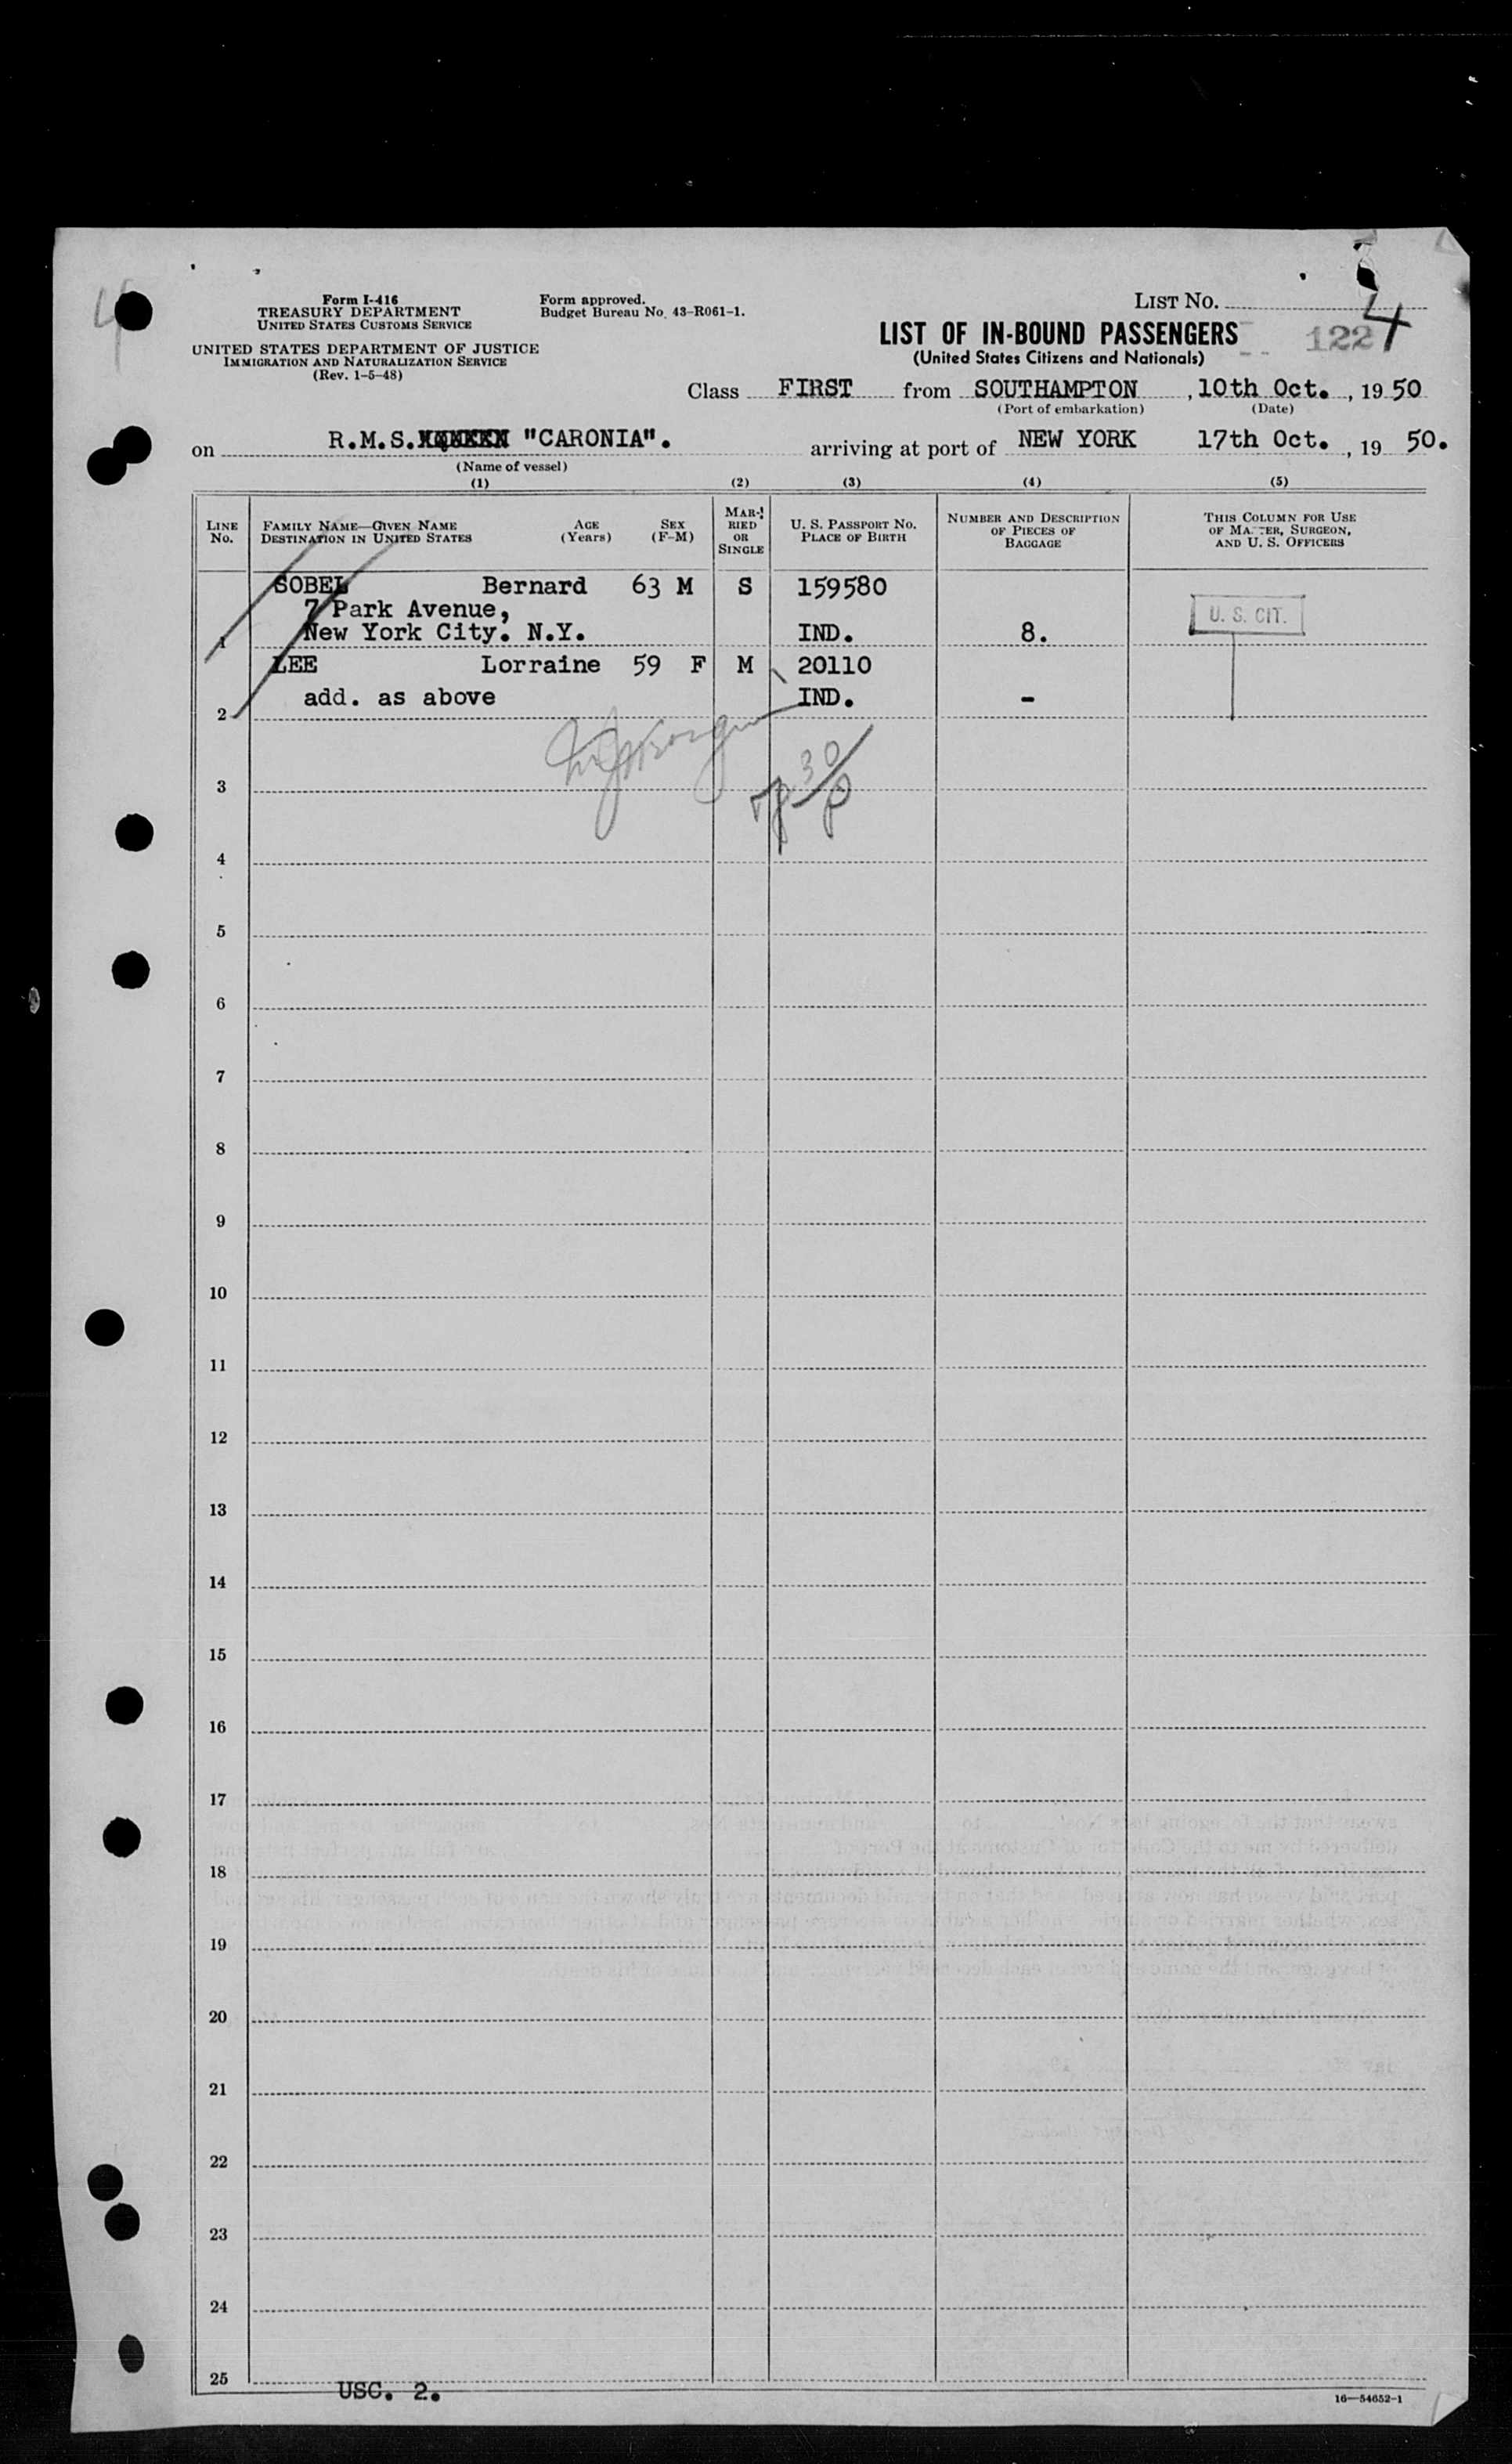 Form I-416
TREASURY DEPARTMENT
UNITED STATES CUSTOMS SERVICE
UNITED STATES DEPARTMENT OF JUSTICE
IMMIGRATION AND NATURALIZATION SERVICE
(Rev. 1-5-48)
Form approved.
Budget Bureau No. 43-R061-1.
LIST NO. 4
LIST OF IN-BOUND PASSENGERS
(United States Citizens and Nationals)
122
Class FIRST from SOUTHAMPTON, 10th Oct., 1950
(Port of embarkation) (Date)
on R.M.S. "CARONIA". arriving at port of NEW YORK 17th Oct., 19 50.
(Name of vessel)
(1) (2) (3) (4) (5)
LINE No. FAMILY NAME—GIVEN NAME DESTINATION IN UNITED STATES AGE (Years) SEX (F-M) MARRIED OR SINGLE U. S. PASSPORT NO. PLACE OF BIRTH NUMBER AND DESCRIPTION OF PIECES OF BAGGAGE THIS COLUMN FOR USE OF MASTER, SURGEON, AND U. S. OFFICERS
SOBEL Bernard 63 M S 159580
7 Park Avenue,
1 New York City. N.Y. IND. 8. U. S. CIT.
LEE Lorraine 59 F M 20110
add. as above IND. -
2
3
4
5
6
7
8
9
10
11
12
13
14
15
16
17
18
19
20
21
22
23
24
25
USC. 2.
16—54652-1